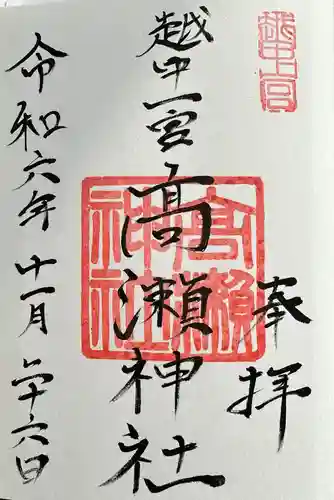 越中一宮
奉拝
越中一宮高瀬神社
高瀬神社
令和六年十一月二十六日